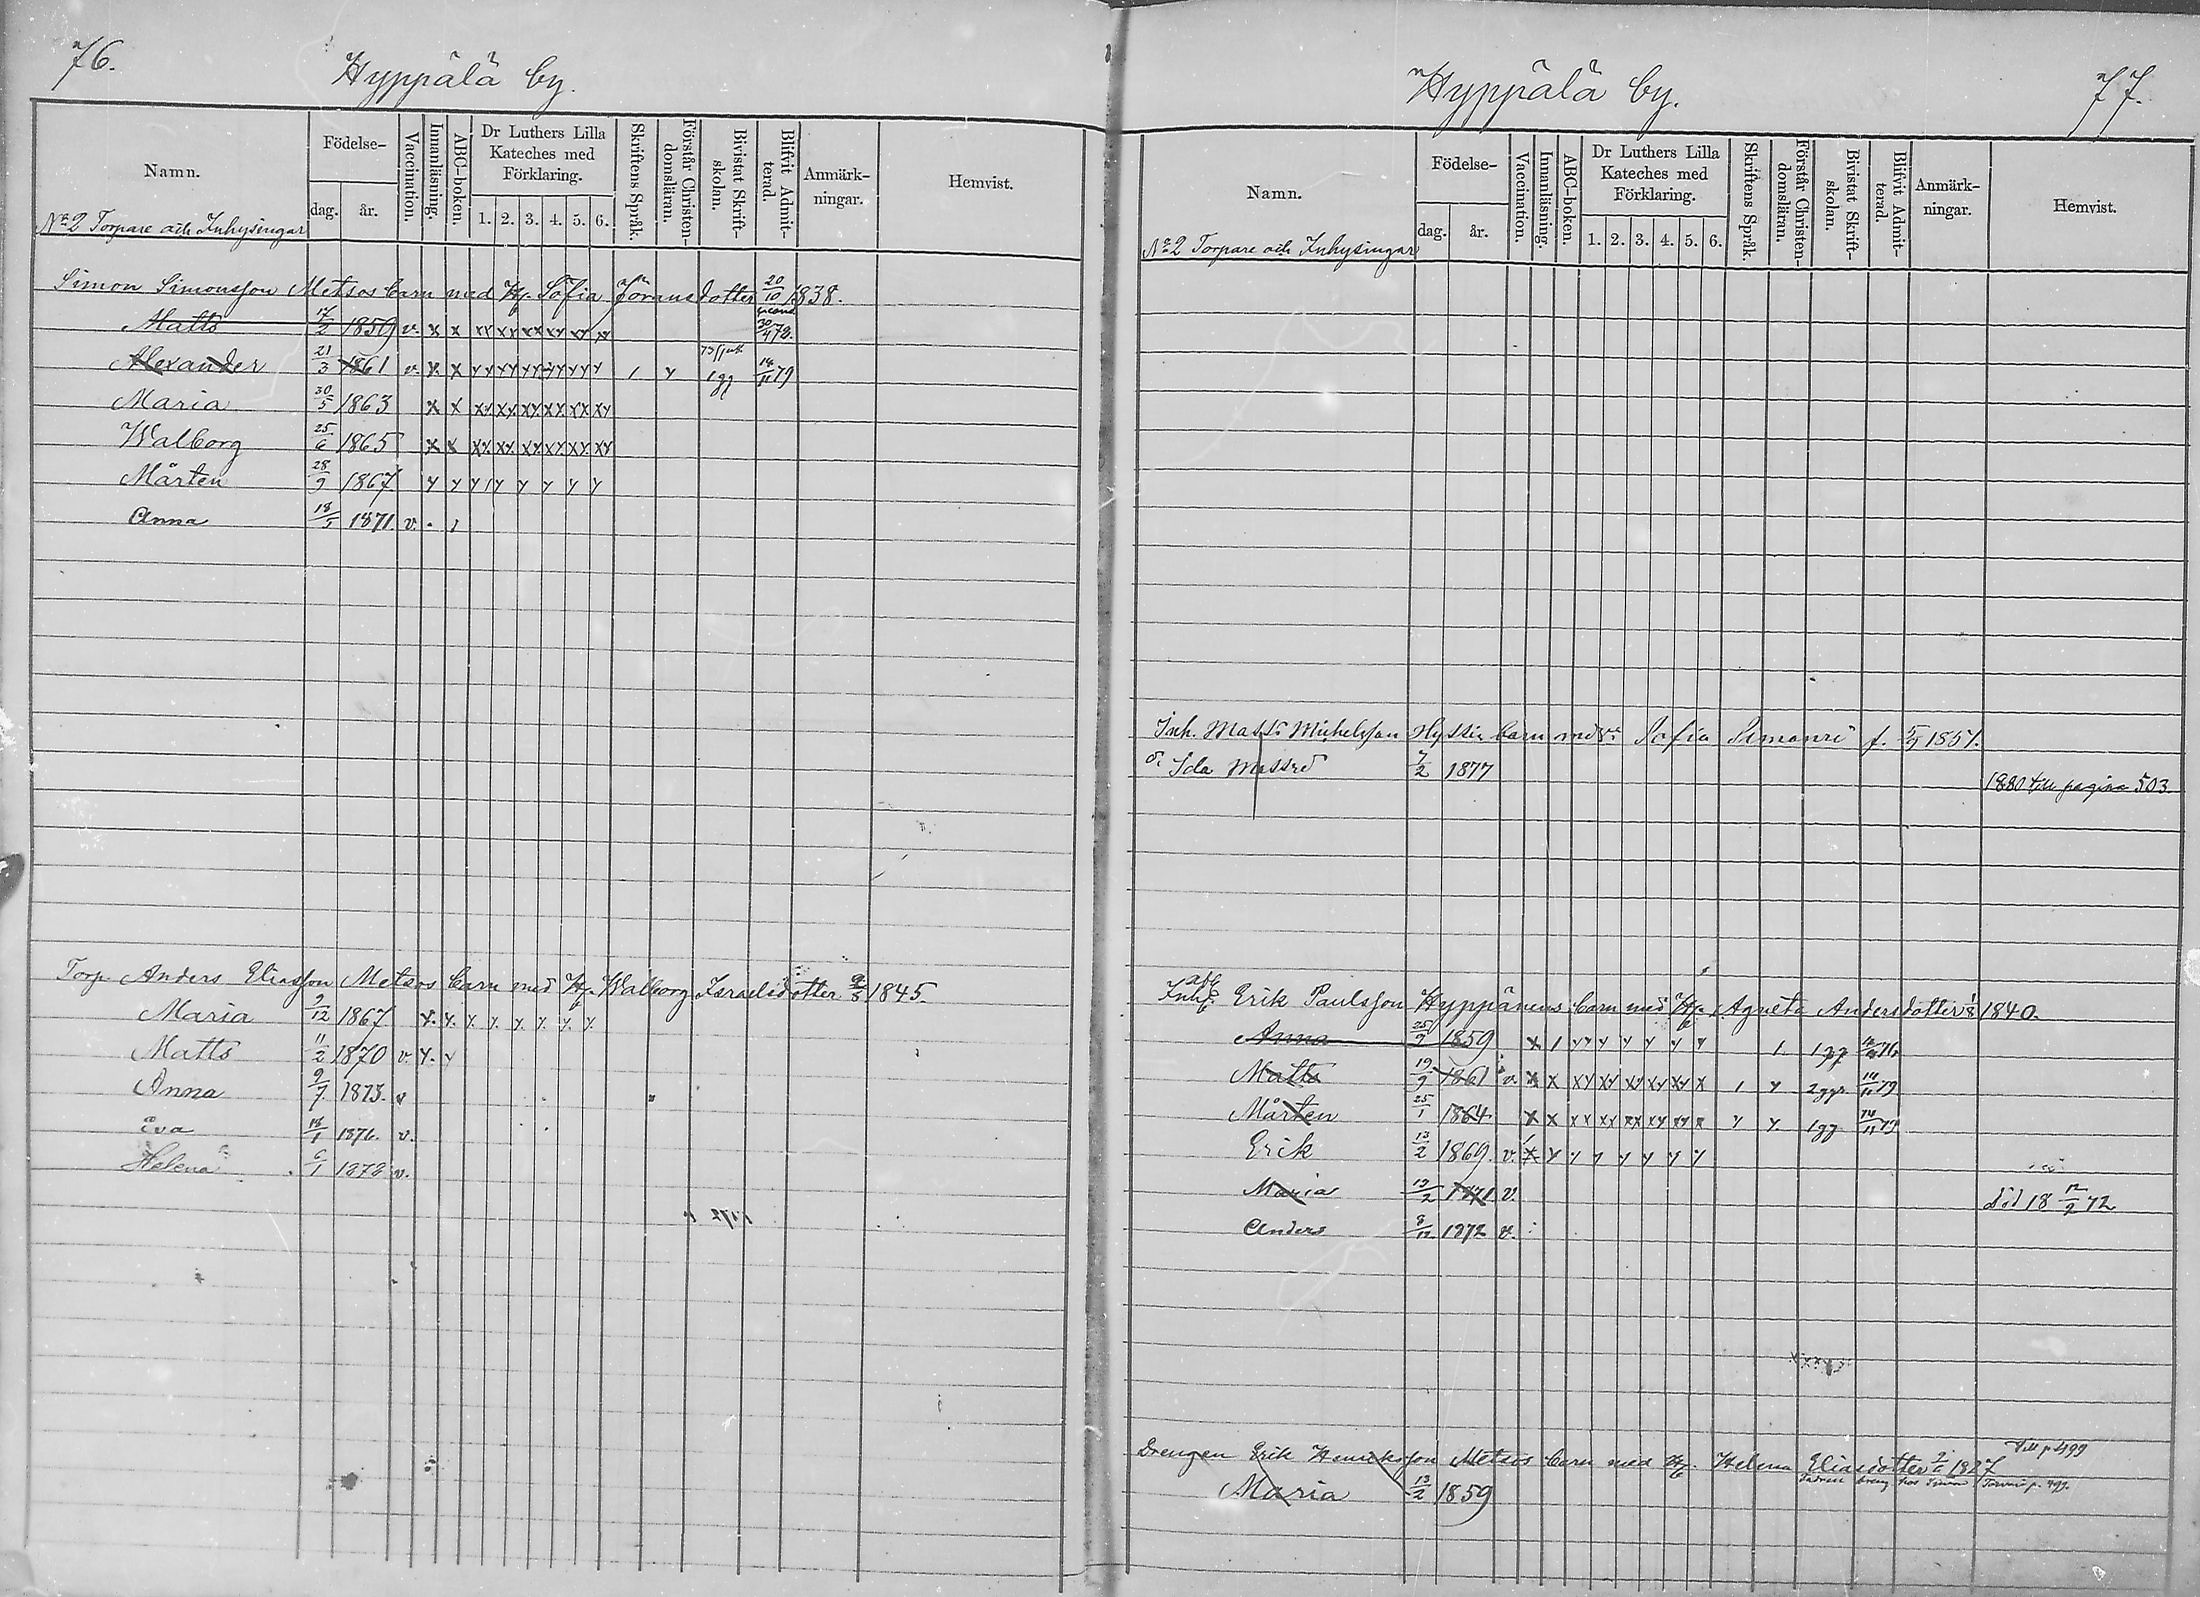 76.
Hyppälä by.
Namn.
Födelse-
dag. år.
Vaccination.
Innanläsning.
ABC-boken.
Dr Luthers Lilla Kateches med Förklaring.
1. 2. 3. 4. 5. 6.
Skriftens Språk.
Förstår Christen-domsläran.
Bivistat Skrift-skolan.
Blifvit Admit-terad.
Anmärk-ningar.
Hemvist.
No 2 Torpare och Inhysingar
Simon Simonsson Metsos barn med Hu. Sofia Göransdotter 20/10 1838.
Matts 17/2 1859 v. x x xx xx xx xx xx xx 30/4 78.
Alexander 21/3 1861 v. x x 1 y 1 gg 14/11 79
Maria 30/5 1863 x x xx xx xx xx xx xx
Walborg 25/6 1865 x x xx xx xx xx xx xx
Mårten 28/9 1867 y y y y y y y y
Anna 18/5 1871 v.
Torp. Anders Eliasson Metsos barn med Hu. Walborg Israelsdotter 1845.
Maria 9/12 1867 y. y. y. y. y. y. y. y.
Matts 11/2 1870 v. y. y
Anna 9/7 1873. v
Eva 18/1 1876. v.
Helena 6/1 1878 v.
Hyppälä by.
77.
Namn.
Födelse-
dag. år.
Vaccination.
Innanläsning.
ABC-boken.
Dr Luthers Lilla Kateches med Förklaring.
1. 2. 3. 4. 5. 6.
Skriftens Språk.
Förstår Christen-domsläran.
Bivistat Skrift-skolan.
Blifvit Admit-terad.
Anmärk-ningar.
Hemvist.
No 2 Torpare och Inhysingar
Inh. Matts Michelsson barn med Sofia f. 1851.
d. Ida 7/2 1877
1880 till pagina 503.
Inh. Erik Paulsson Hyppänens barn med Hu. Agneta Andersdotter 1840.
Anna 25/9 1859 x 1 1 1 gg
Matts 19/9 1861 v. x x xy xy xy xy xy x 1 y 2 ggr 14/11 79
Mårten 25/1 1864 x x xx xx xx xx xx x y y 1 gg 14/11 79
Erik 13/2 1869. v. x y y y y y y y
Maria 13/2 1871 v. död 18 12/2 72
Anders 8/12 1872 v.
Till p 499
Drengen Erik Henriksson Metsos barn med Hu. Helena Eliasdotter 1827
dreng hos Simon p. 499.
Maria 13/2 1859